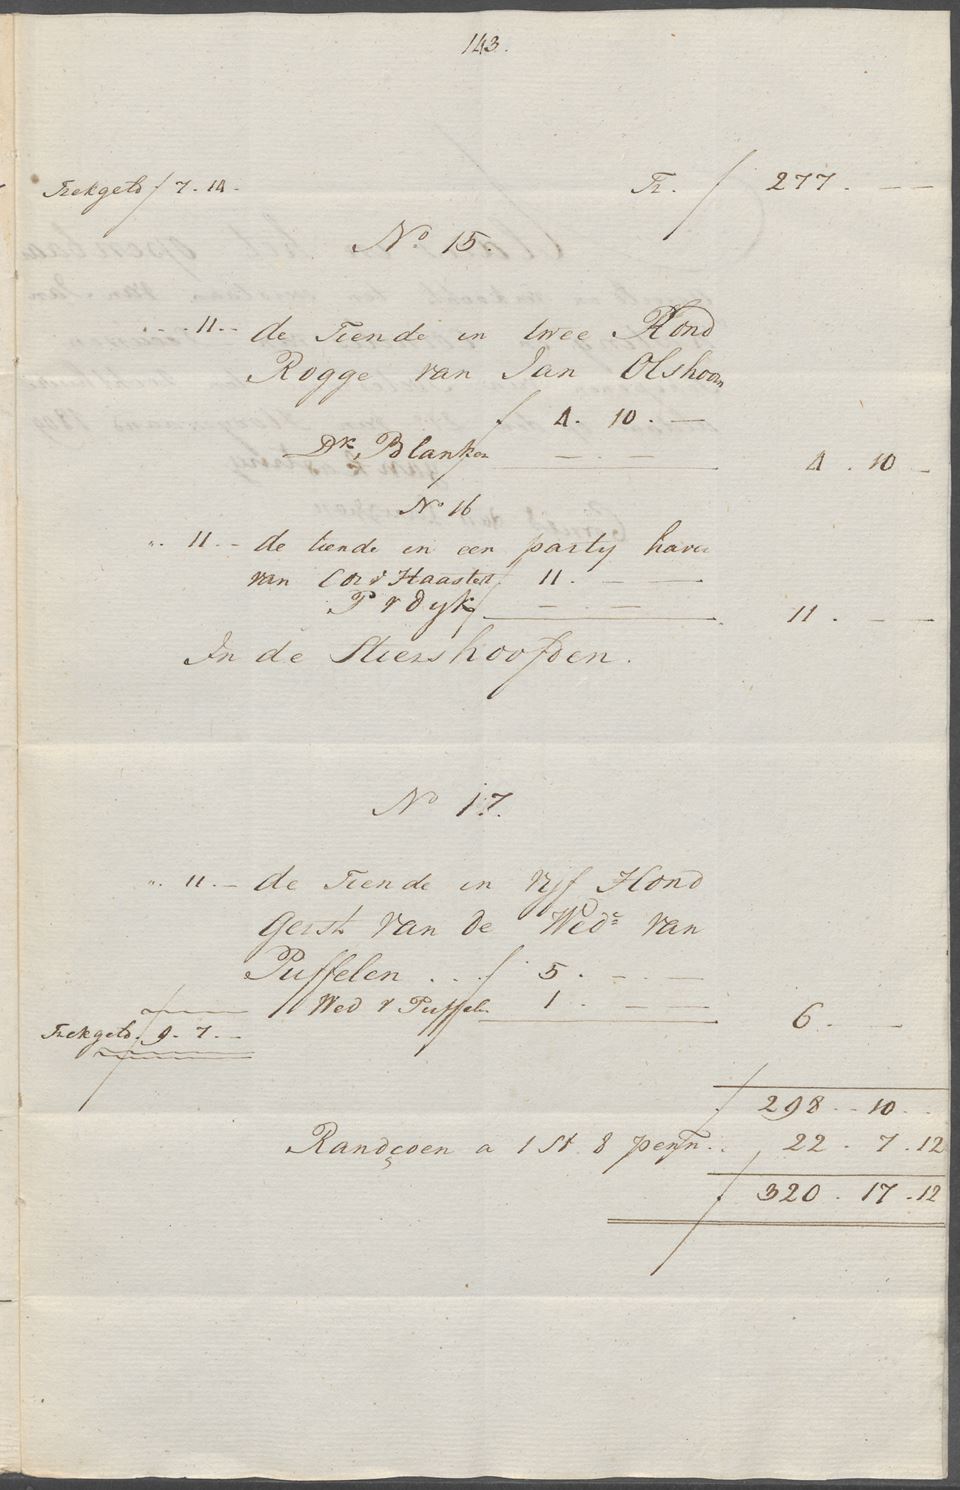 143.
Trekgeld ƒ 7. 14. Tr. ƒ 277. — —
No 15.
" 11. — de Tiende in twee Hond
Rogge van Jan Olshoorn
ƒ 4. 10. —
Dk, Blanken — . — 4. 10 —
No 16
" 11. — de tiende in een party haver
van Cor v Haastert 11. — —
P v dyk — . — 11. — —
In de Stiershoofden.
No 17.
" 11. — de Tiende in vyf Hond
Gerst van de Wede van
Puffelen . . ƒ 5. — . —
Wed v Puffelen 1. — — 6. — —
Trekgeld. 9. 7. —
ƒ 298. 10. .
Randçoen a 1 St. 8 penn. . 22. 7. 12
ƒ 320. 17. 12